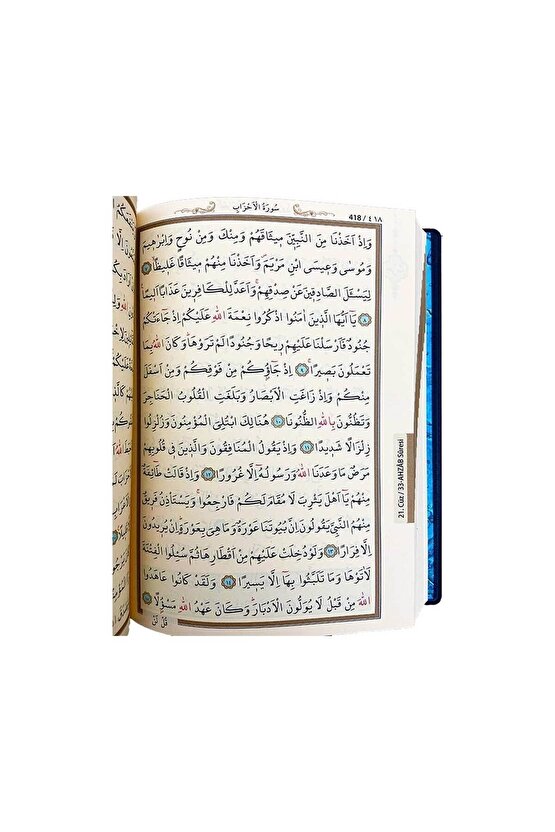 سُورَةُ الْاَحْزَابِ
418 / ٤١٨
وَاِذْ اَخَذْنَا مِنَ النَّبِيّٖنَ مٖيثَاقَهُمْ وَمِنْكَ وَمِنْ نُوحٍ وَاِبْرٰهٖيمَ
وَمُوسٰى وَعٖيسَى ابْنِ مَرْيَمَ وَاَخَذْنَا مِنْهُمْ مٖيثَاقًا غَلٖيظًا ٧
لِيَسْـَٔلَ الصَّادِقٖينَ عَنْ صِدْقِهِمْ وَاَعَدَّ لِلْكَافِرٖينَ عَذَابًا اَلٖيمًا
٨ يَٓا اَيُّهَا الَّذٖينَ اٰمَنُوا اذْكُرُوا نِعْمَةَ اللّٰهِ عَلَيْكُمْ اِذْ جَٓاءَتْكُمْ
جُنُودٌ فَاَرْسَلْنَا عَلَيْهِمْ رٖيحًا وَجُنُودًا لَمْ تَرَوْهَا وَكَانَ اللّٰهُ بِمَا
تَعْمَلُونَ بَصٖيرًا ٩ اِذْ جَٓاؤُكُمْ مِنْ فَوْقِكُمْ وَمِنْ اَسْفَلَ
مِنْكُمْ وَاِذْ زَاغَتِ الْاَبْصَارُ وَبَلَغَتِ الْقُلُوبُ الْحَنَاجِرَ
وَتَظُنُّونَ بِاللّٰهِ الظُّنُونَا ١٠ هُنَالِكَ ابْتُلِيَ الْمُؤْمِنُونَ وَزُلْزِلُوا
زِلْزَالًا شَدٖيدًا ١١ وَاِذْ يَقُولُ الْمُنَافِقُونَ وَالَّذٖينَ فٖي قُلُوبِهِمْ
مَرَضٌ مَا وَعَدَنَا اللّٰهُ وَرَسُولُهُٓ اِلَّا غُرُورًا ١٢ وَاِذْ قَالَتْ طَٓائِفَةٌ
مِنْهُمْ يَٓا اَهْلَ يَثْرِبَ لَا مُقَامَ لَكُمْ فَارْجِعُوا وَيَسْتَأْذِنُ فَرٖيقٌ
مِنْهُمُ النَّبِيَّ يَقُولُونَ اِنَّ بُيُوتَنَا عَوْرَةٌ وَمَا هِيَ بِعَوْرَةٍ اِنْ يُرٖيدُونَ
اِلَّا فِرَارًا ١٣ وَلَوْ دُخِلَتْ عَلَيْهِمْ مِنْ اَقْطَارِهَا ثُمَّ سُئِلُوا الْفِتْنَةَ
لَاٰتَوْهَا وَمَا تَلَبَّثُوا بِهَٓا اِلَّا يَسٖيرًا ١٤ وَلَقَدْ كَانُوا عَاهَدُوا
اللّٰهَ مِنْ قَبْلُ لَا يُوَلُّونَ الْاَدْبَارَ وَكَانَ عَهْدُ اللّٰهِ مَسْؤُ۫لًا ١٥
قُلْ لَنْ
21. Cüz / 33-AHZÂB Sûresi